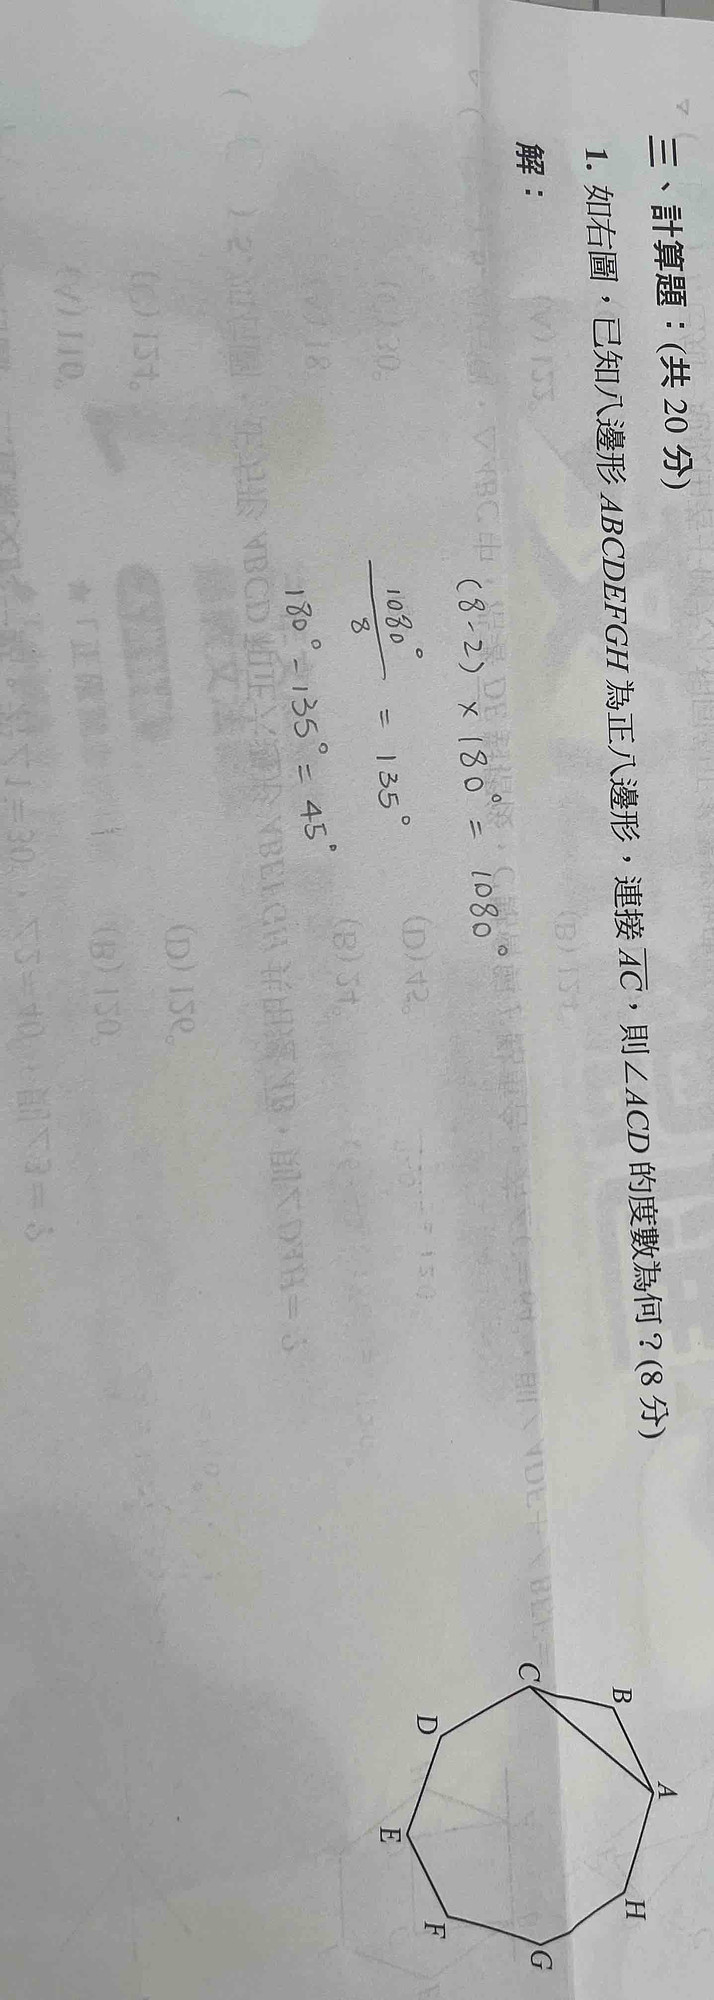 三、計算題：(共 20 分)
1. 如右圖，已知八邊形 ABCDEFGH 為正八邊形，連接 AC，則∠ACD 的度數為何？(8 分)
解：
(8-2) × 180° = 1080°
1080°/8 = 135°
180° - 135° = 45°
A
B
C
D
E
F
G
H